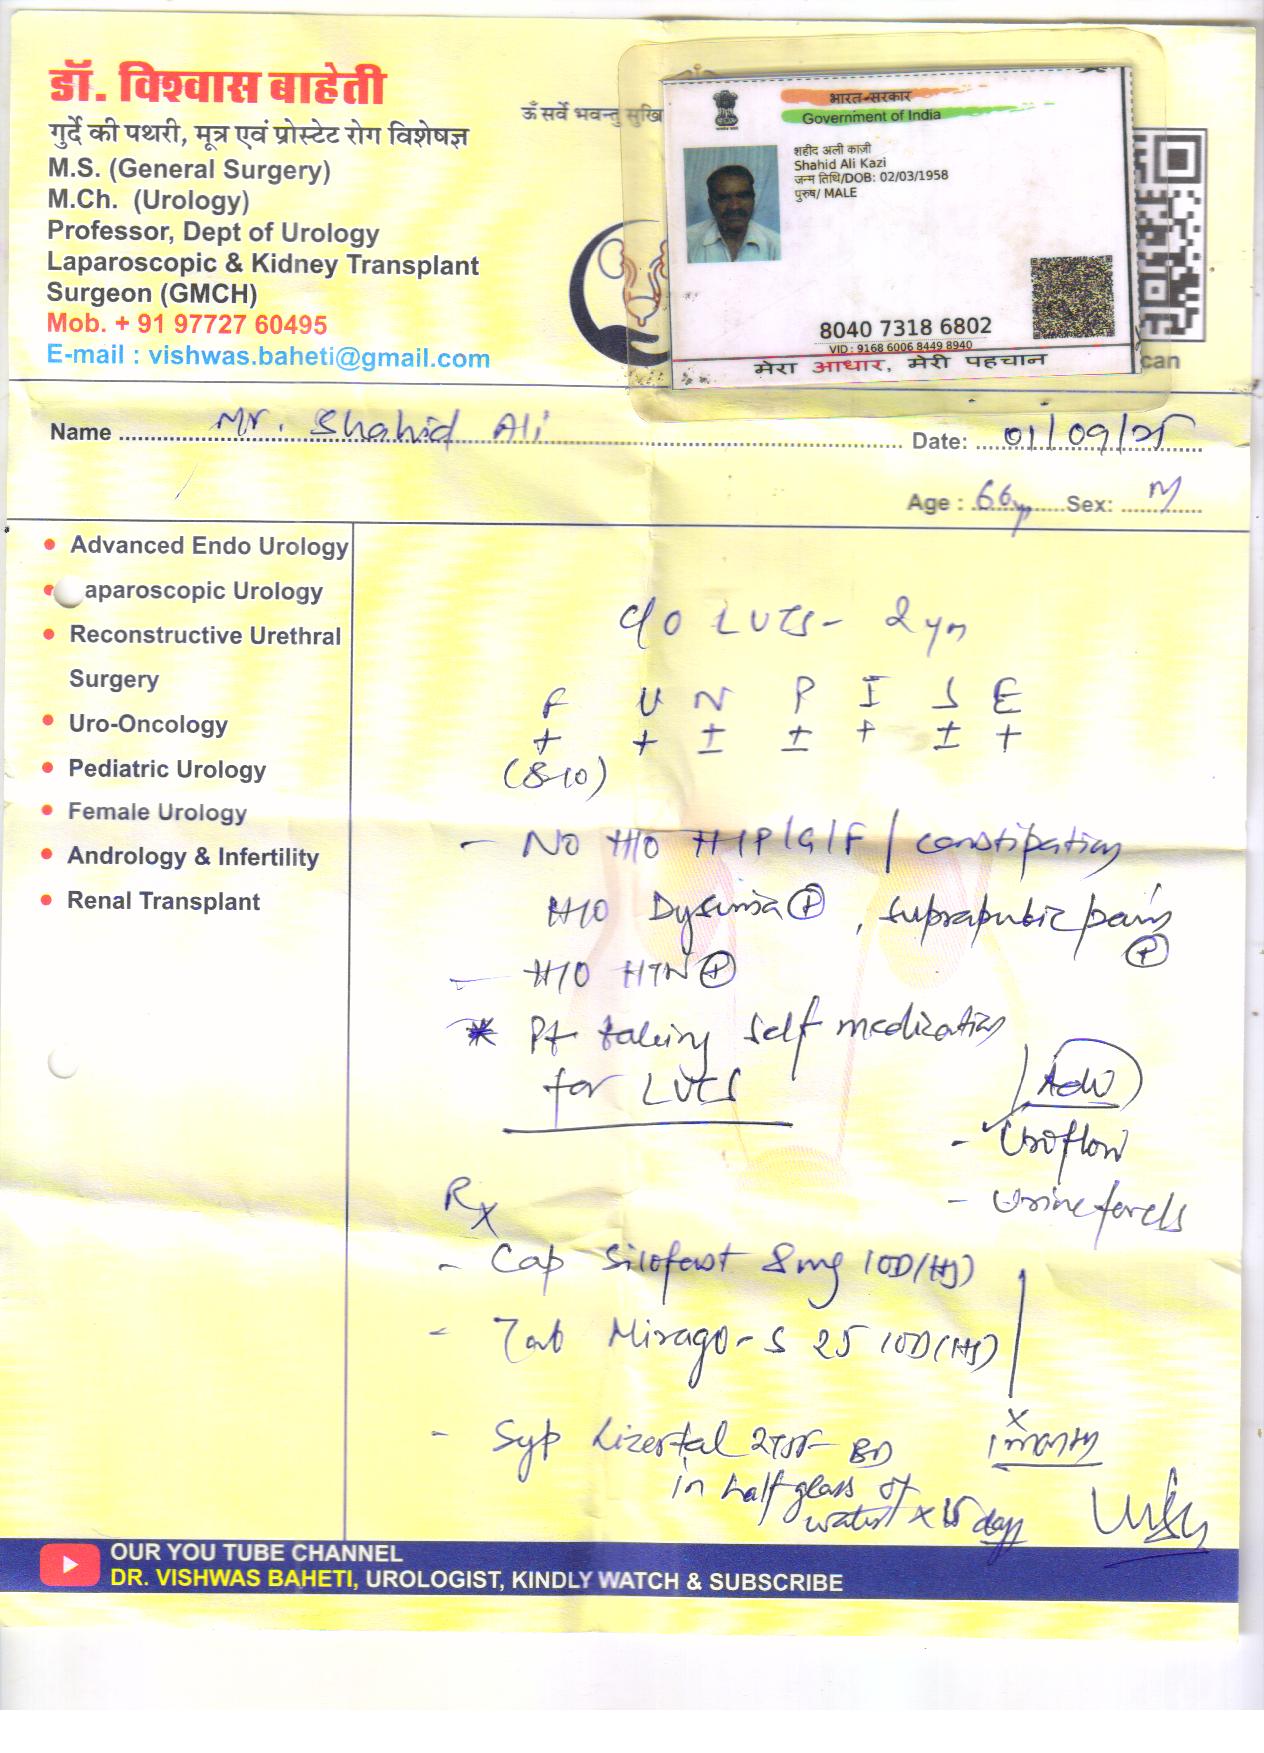 डॉ. विश्वास बाहेती
गुर्दे की पथरी, मूत्र एवं प्रोस्टेट रोग विशेषज्ञ
M.S. (General Surgery)
M.Ch. (Urology)
Professor, Dept of Urology
Laparoscopic & Kidney Transplant
Surgeon (GMCH)
Mob. + 91 97727 60495
E-mail : vishwas.baheti@gmail.com
ॐ सर्वे भवन्तु सुखि
भारत सरकार
Government of India
शहीद अली काज़ी
Shahid Ali Kazi
जन्म तिथि/DOB: 02/03/1958
पुरुष/ MALE
8040 7318 6802
VID : 9168 6006 8449 8940
मेरा आधार, मेरी पहचान
can
Name Mr. Shahid Ali Date: 01/09/25
Age : 66y Sex: M
Advanced Endo Urology
aparoscopic Urology
Reconstructive Urethral
Surgery
Uro-Oncology
Pediatric Urology
Female Urology
Andrology & Infertility
Renal Transplant
c/o LUTS - 2 yrs
F U N P I S E
+ + ± ± + ± +
(8-10)
- No H/O H/P/G/F / constipation
H/O Dysuria ⊕, suprapubic pain ⊕
- H/O HTN ⊕
* Pt taking self medication
for LUTS
Adv
- Uroflow
- Urine
Rx
- Cap Silofast 8mg 1OD/(HS)
- Tab Mirago-S 25 1OD(HS)
x 1 month
- Syp Lizertal 2TSF BD
in half glass of
water x 15 days
OUR YOU TUBE CHANNEL
DR. VISHWAS BAHETI, UROLOGIST, KINDLY WATCH & SUBSCRIBE